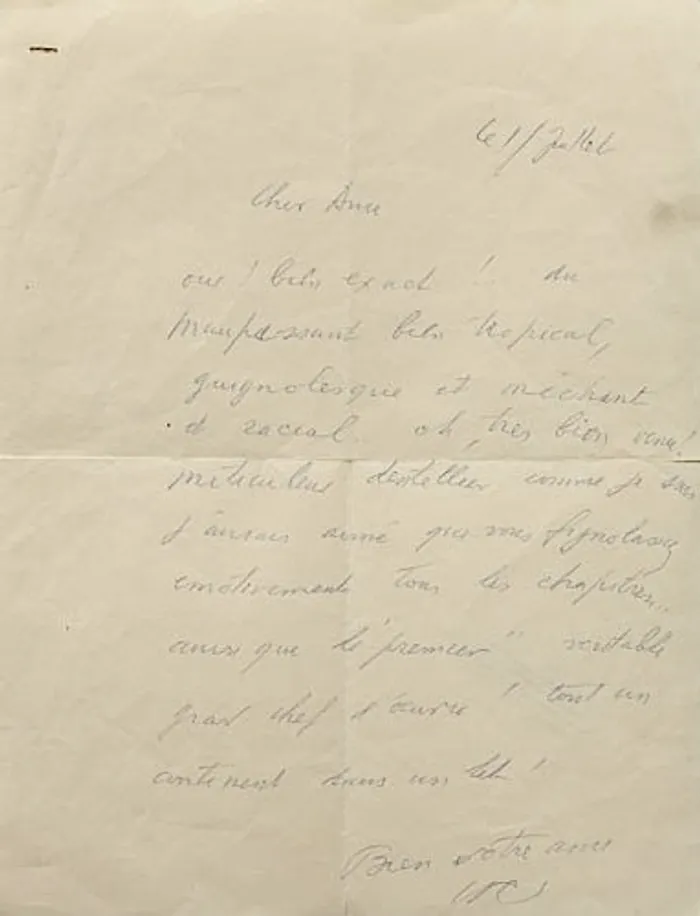 le 1/ Juillet
Cher Ami
oui ! bien exact ! du
Maupassant bien tropical,
guignolesque et méchant
et racial oh, très bien venu !
méticuleux dentellier comme je suis
j'aurais aimé que vous fignolassiez
émotivement tous les chapitres...
ainsi que le "premier" véritable
grand chef d'œuvre ! tout un
continent dans un !
Bien votre ami